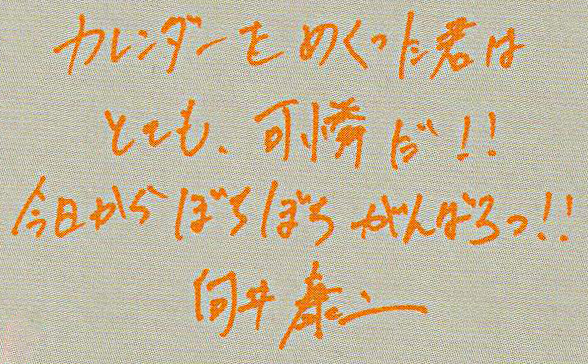 カレンダーをめくった君は
とても、可憐だ!!
今日からぼちぼちがんばろっ!!
向井康二